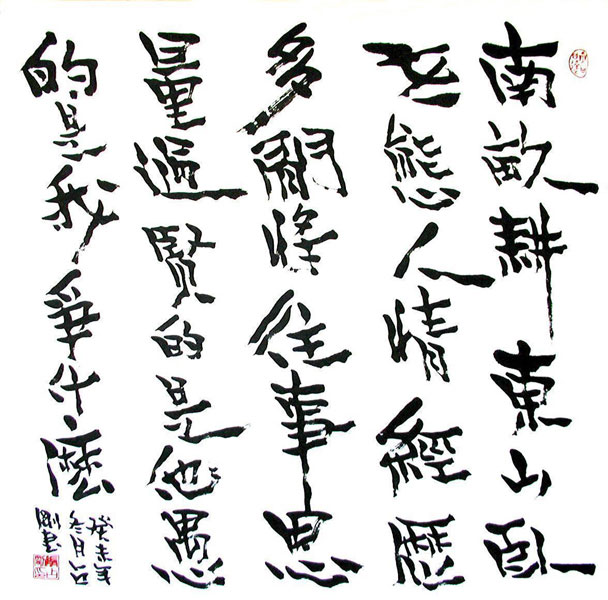 南畝耕東山臥
世態人情經歷
多閒將往事思
量過賢的是他愚
的是我爭什麼
癸未年
冬月
剛書